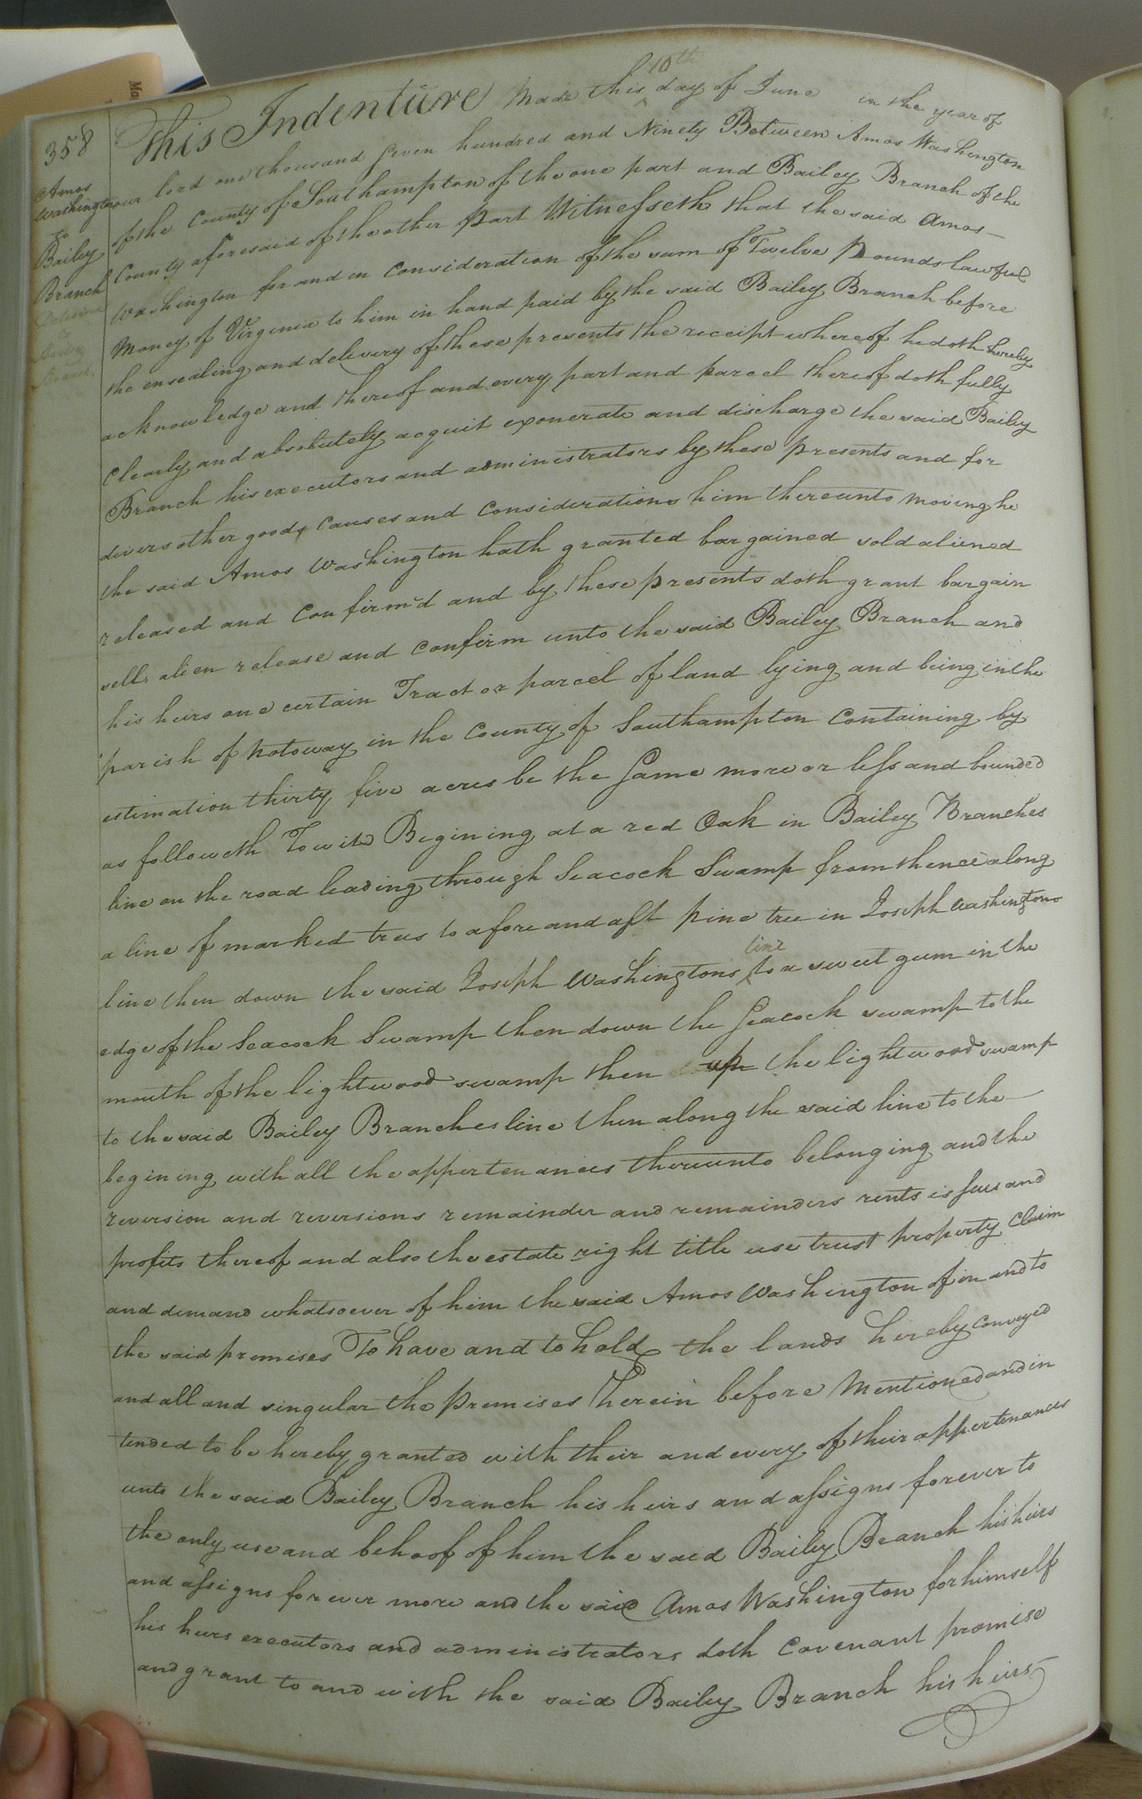 358
Amos
Washington
to
Bailey
Branch
10th
This Indenture Made this ^ day of June in the year of
our lord one thousand seven hundred and Ninety Between Amos Washington
of the County of Southampton of the one part and Bailey Branch of the
County aforesaid of the other part Witnesseth that the said Amos
Washington for and in Consideration of the sum of Twelve Pounds lawful
Money of Virginia to him in hand paid by the said Bailey Branch before
the ensealing and delivery of these presents the receipt whereof he doth hereby
acknowledge and thereof and every part and parcel thereof doth fully
Clearly and absolutely acquit exonerate and discharge the said Bailey
Branch his executors and administrators by these presents and for
divers other good causes and Considerations him thereunto moving he
the said Amos Washington hath granted bargained sold aliened
released and Confirm'd and by these presents doth grant bargain
sell alien release and confirm unto the said Bailey Branch and
his heirs one certain Tract or parcel of land lying and being in the
parish of Notoway in the County of Southampton Containing by
estimation thirty five acres be the same more or less and bounded
as followeth To wit Begining at a red Oak in Bailey Branches
line on the road leading through Seacock Swamp from thence along
a line of marked trees to a fore and aft pine tree in Joseph Washingtons
line then down the said Joseph Washingtons ^line to a sweet gum in the
edge of the Seacock Swamp then down the Seacock swamp to the
mouth of the lightwood swamp then up the lightwood swamp
to the said Bailey Branches line then along the said line to the
begining with all the appertenances thereunto belonging and the
reversion and reversions remainder and remainders rents issues and
profits thereof and also the estate right title use trust property Claim
and demand whatsoever of him the said Amos Washington of in and to
the said premises To have and to hold the lands hereby Conveyed
and all and singular the Premises herein before Mentioned and in
tended to be hereby granted with their and every of their appertenances
unto the said Bailey Branch his heirs and assigns forever to
the only use and behoof of him the said Bailey Branch his heirs
and assigns for ever more and the said Amos Washington for himself
his heirs executors and administrators doth Covenant promise
and grant to and with the said Bailey Branch his heirs